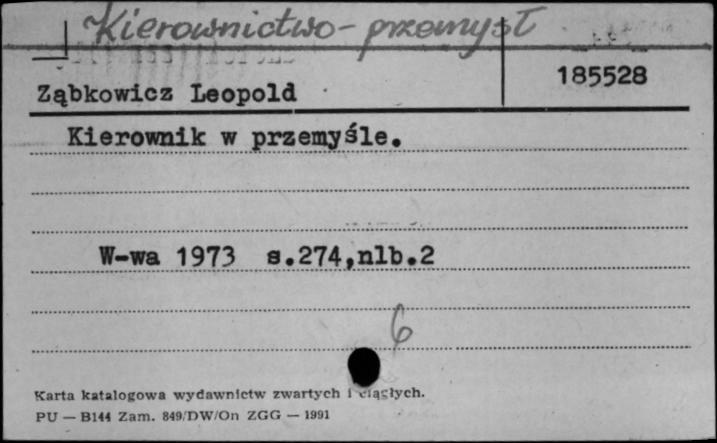 Kierownictwo - przemysł
185528
Ząbkowicz Leopold
Kierownik w przemyśle.
W-wa 1973 s.274,nlb.2
6
Karta katalogowa wydawnictw zwartych i ciągłych.
PU — B144 Zam. 849/DW/On ZGG — 1991